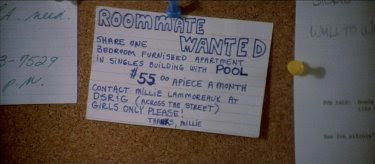 A. need.
3-7529
p.m.
ROOMMATE
WANTED
SHARE ONE
BEDROOM FURNISHED APARTMENT
IN SINGLES BUILDING WITH POOL
$55.00 APIECE A MONTH
CONTACT MILLIE LAMMOREAUX AT
DSRIG (ACROSS THE STREET)
GIRLS ONLY PLEASE!
THANKS, MILLIE